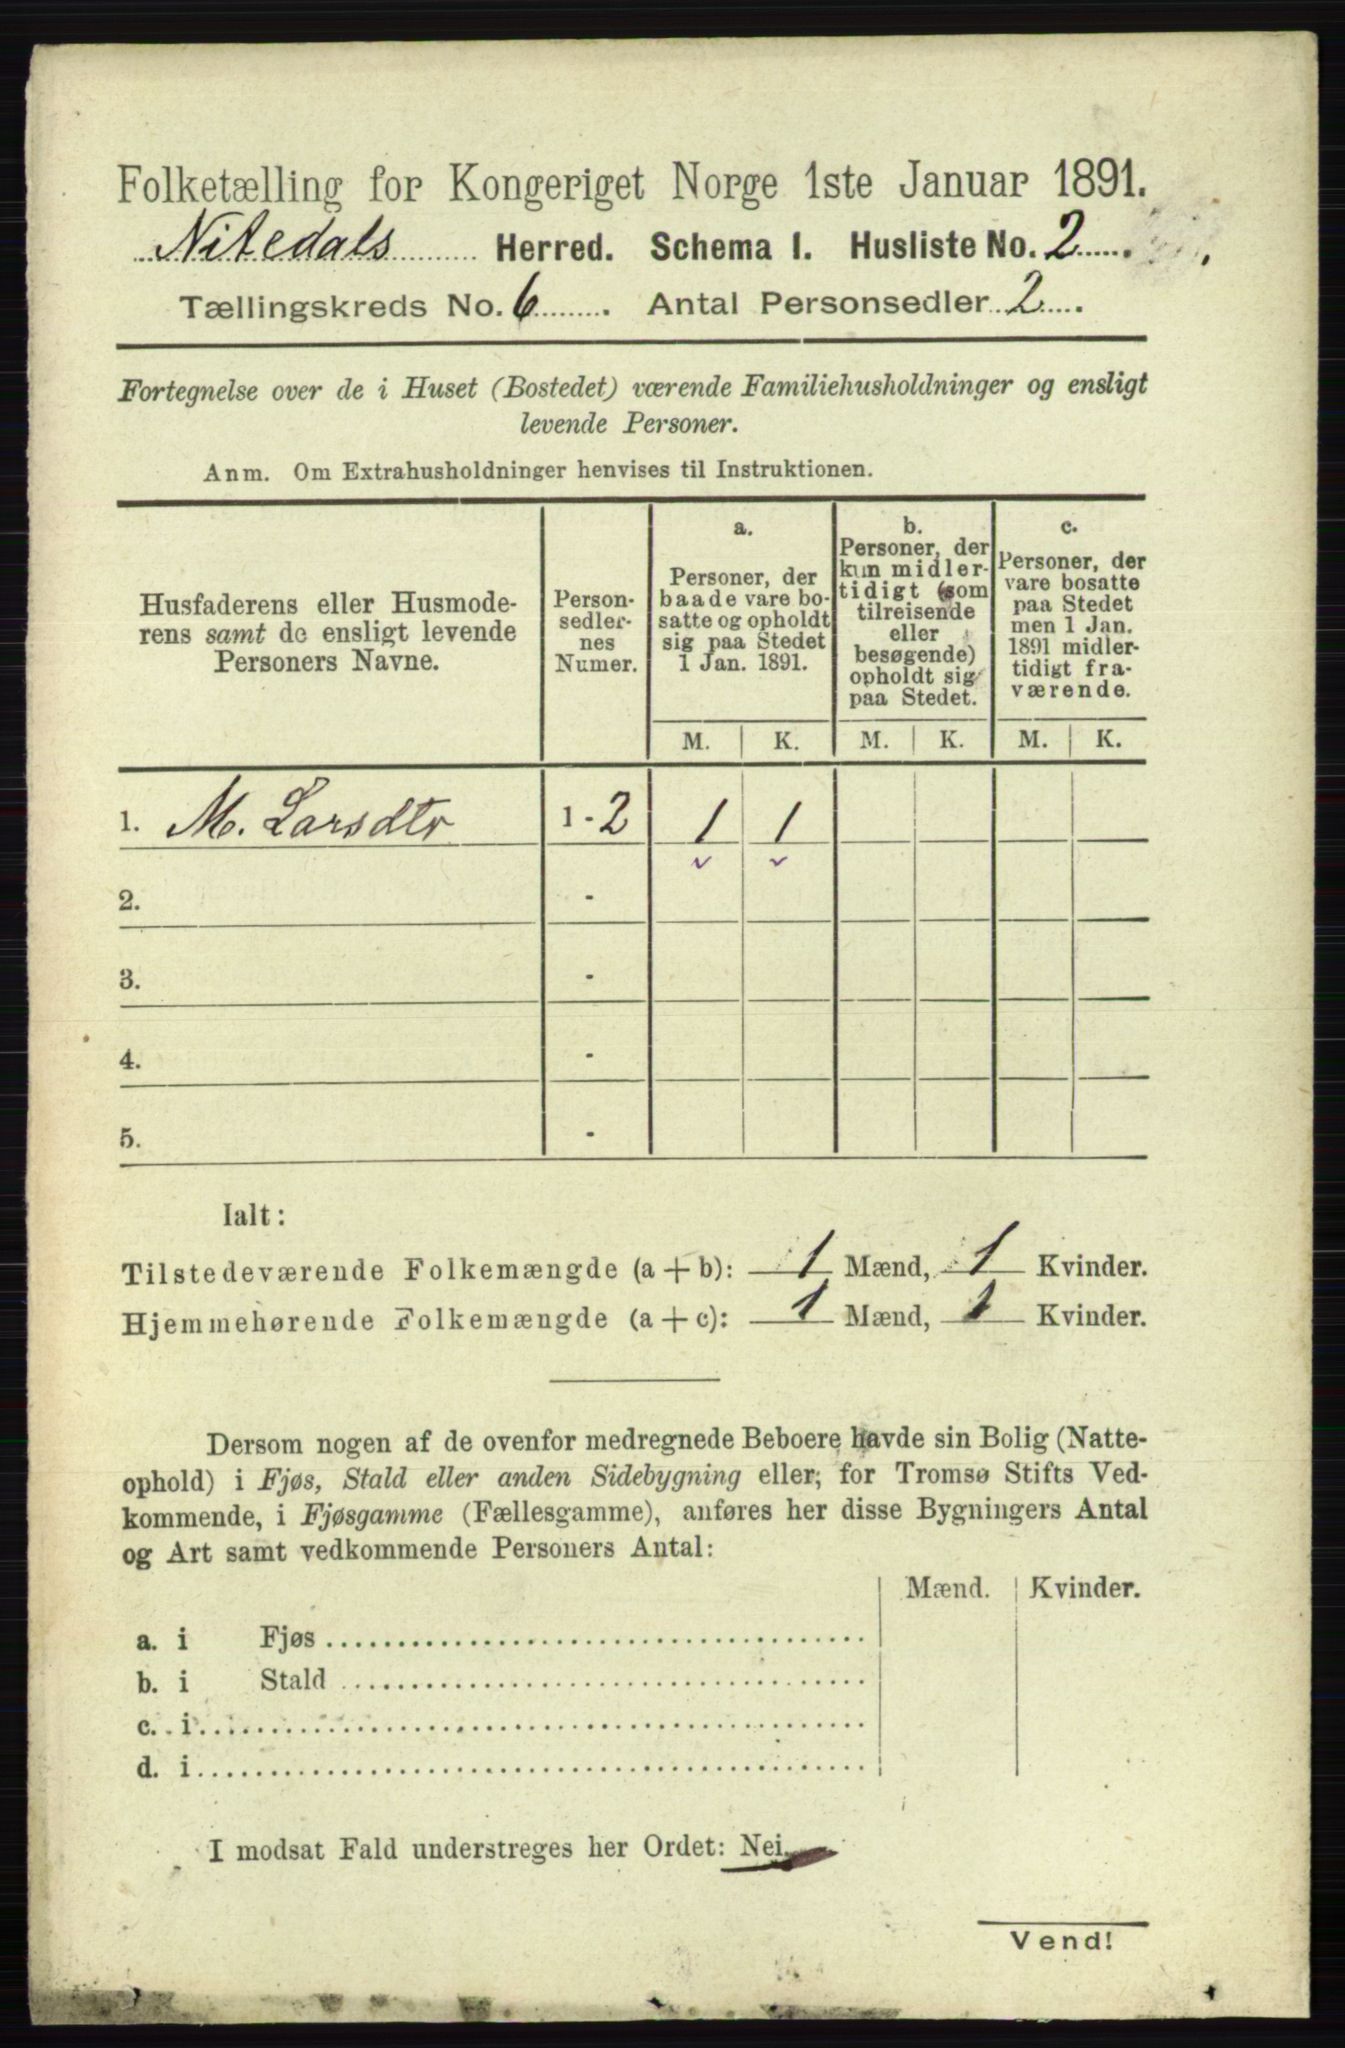 Folketælling for Kongeriget Norge 1ste Januar 1891.
Nitedals Herred. Schema I. Husliste No. 2
Tællingskreds No. 6. Antal Personsedler 2.
Fortegnelse over de i Huset (Bostedet) værende Familiehusholdninger og ensligt
levende Personer.
Anm. Om Extrahusholdninger henvises til Instruktionen.
Husfaderens eller Husmode-
rens samt de ensligt levende
Personers Navne.
Person-
sedler-
nes
Numer.
a.
Personer, der
baade vare bo-
satte og opholdt
sig paa Stedet
1 Jan. 1891.
b.
Personer, der
kun midler-
tidigt (som
tilreisende
eller
besøgende)
opholdt sig
paa Stedet.
c.
Personer, der
vare bosatte
paa Stedet
men 1 Jan.
1891 midler-
tidigt fra-
værende.
M. K. M. K. M. K.
1. M. Larsdtr 1 - 2 1 1
2. -
3. -
4. -
5. -
Ialt:
Tilstedeværende Folkemængde (a + b): 1 Mænd, 1 Kvinder.
Hjemmehørende Folkemængde (a + c): 1 Mænd, 1 Kvinder.
Dersom nogen af de ovenfor medregnede Beboere havde sin Bolig (Natte-
ophold) i Fjøs, Stald eller anden Sidebygning eller, for Tromsø Stifts Ved-
kommende, i Fjøsgamme (Fællesgamme), anføres her disse Bygningers Antal
og Art samt vedkommende Personers Antal:
Mænd. Kvinder.
a. i Fjøs
b. i Stald
c. i
d. i
I modsat Fald understreges her Ordet: Nei.
Vend!